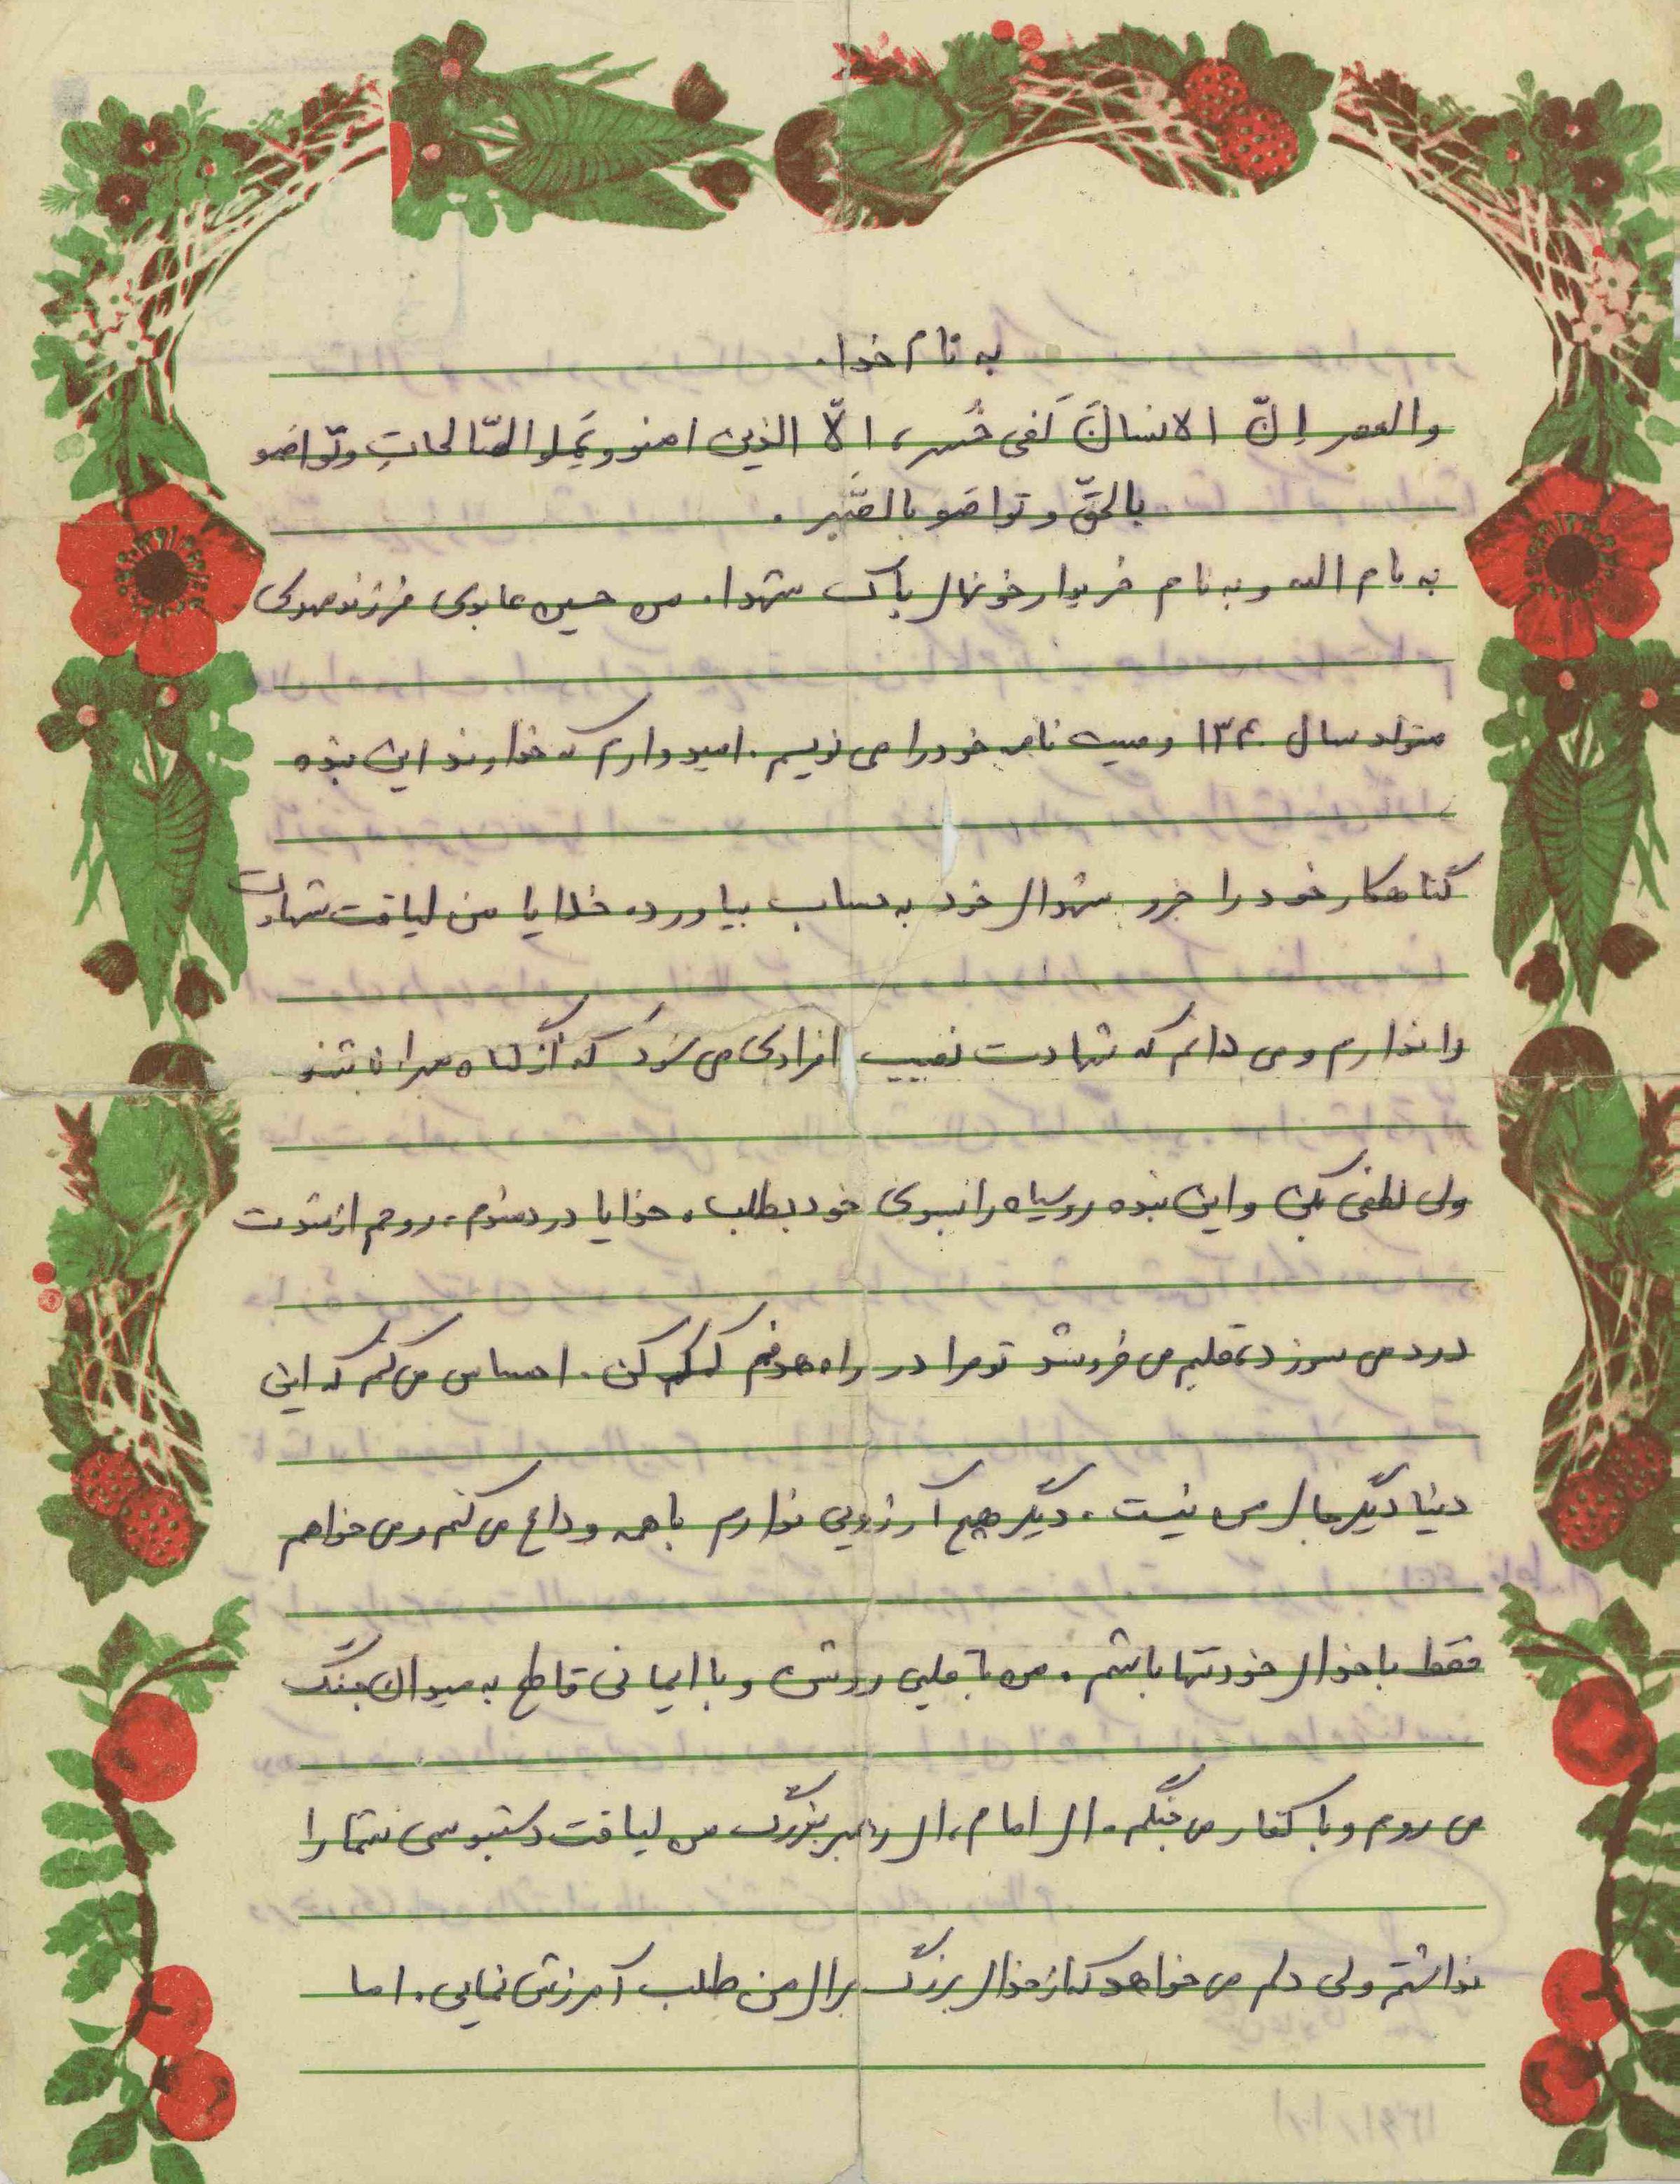 به نام خدا.
والعصر اِنّ الانسانَ لَفی خُسر، الّا الذین امنو وعَمِلوا الصّالحاتِ وتَواصَو
بالحقّ و تواصَو بالصَّبر.
به نام الله و به نام خریدار خونهای پاک شهدا. من حسین عابدی فرزند مهدی
متولد سال ۱۳۴۰ وصیت نامه خود را می نویسم. امیدوارم که خداوند این بنده
گناهکار خود را جزء شهدای خود به حساب بیاورد. خدایا من لیاقت شهادت
را ندارم و می دانم که شهادت نصیب افرادی می شود که از گناه مبرا باشند
ولی لطفی بکن و این بنده روسیاه را بسوی خود بطلب. خدایا دردمندم، روحم از شدت
درد می سوزد، قلبم می خروشد تو مرا در راه هدفم کمک کن. احساس می کنم که این
دنیا دیگر جای من نیست. دیگر هیچ آرزویی ندارم با همه وداع می کنم و می خواهم
فقط با خدای خود تنها باشم. من با قلبی روشن و با ایمانی قاطع به میدان جنگ
می روم و با کفار می جنگم. ای امام، ای رهبر بزرگ من لیاقت دستبوسی شما را
نداشتم ولی دلم می خواهد که از خدای بزرگ برای من طلب آمرزش نمایی. اما